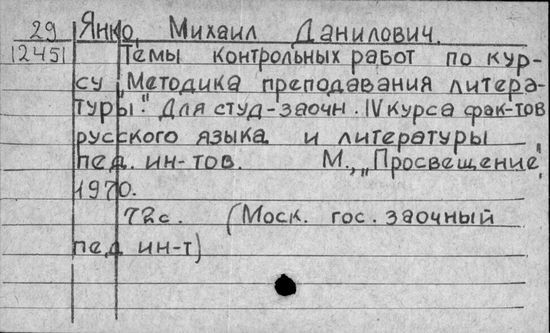 29 Янко, Михаил Данилович.
12451 Темы контрольных работ по кур-
су „Методика преподавания литера-
туры". Для студ-заочн. IV курса фак-тов
русского языка и литературы
пед. ин-тов. М., „Просвещение",
1970.
72с. (Моск. гос. заочный
пед ин-т)